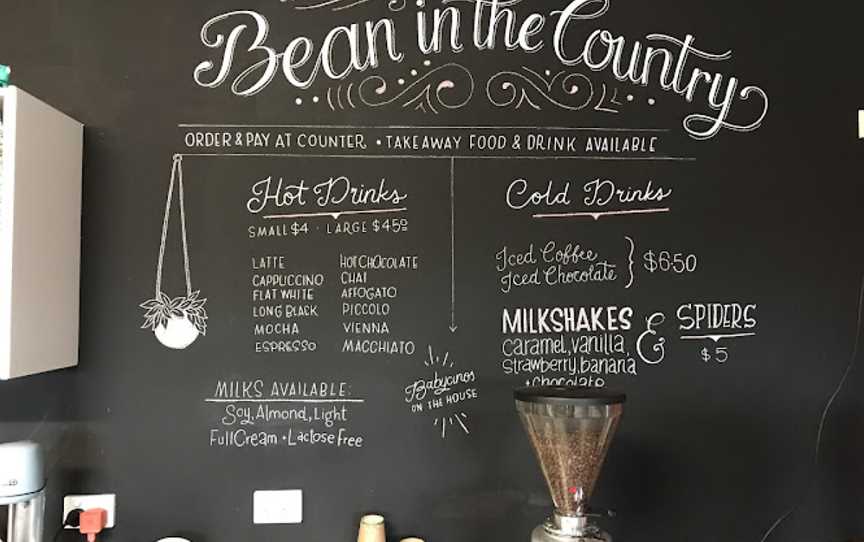 Bean in the Country
ORDER & PAY AT COUNTER • TAKEAWAY FOOD & DRINK AVAILABLE
Hot Drinks
SMALL $4 · LARGE $450
LATTE
CAPPUCCINO
FLAT WHITE
LONG BLACK
MOCHA
ESPRESSO
HOT CHOCOLATE
CHAI
AFFOGATO
PICCOLO
VIENNA
MACCHIATO
MILKS AVAILABLE:
Soy, Almond, Light
Full Cream • Lactose Free
Babycinos
ON THE HOUSE
Cold Drinks
Iced Coffee
Iced Chocolate } $6.50
MILKSHAKES
Caramel, vanilla,
Strawberry, banana
+ Chocolate
& SPIDERS
$5